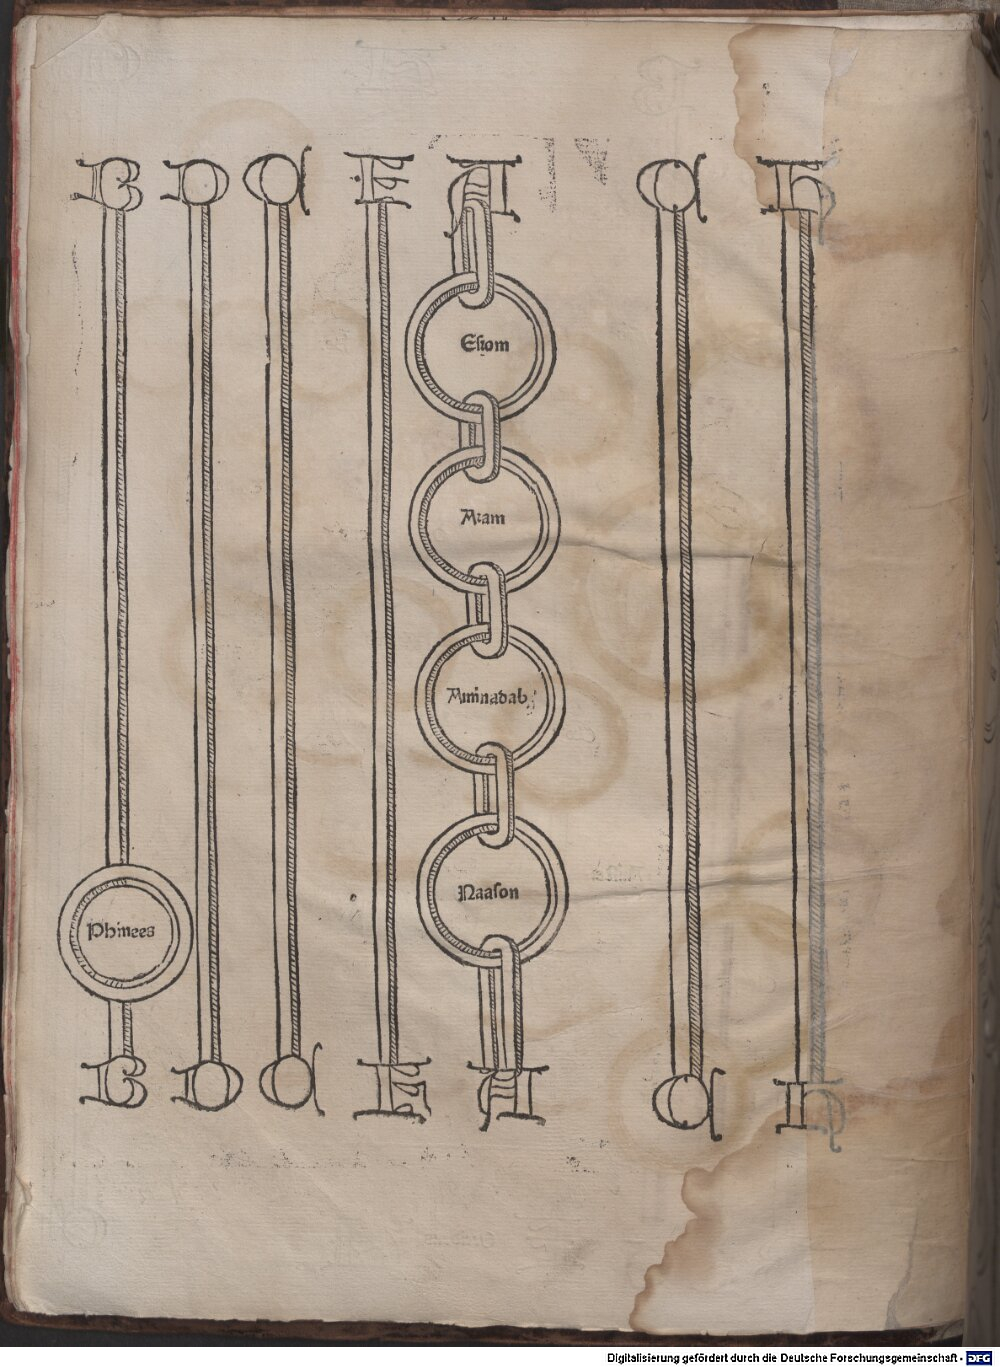 B D G F A G H
Esrom
Aram
Aminadab
Naason
Phinees
B D G F A G H
Digitalisierung gefördert durch die Deutsche Forschungsgemeinschaft - DFG